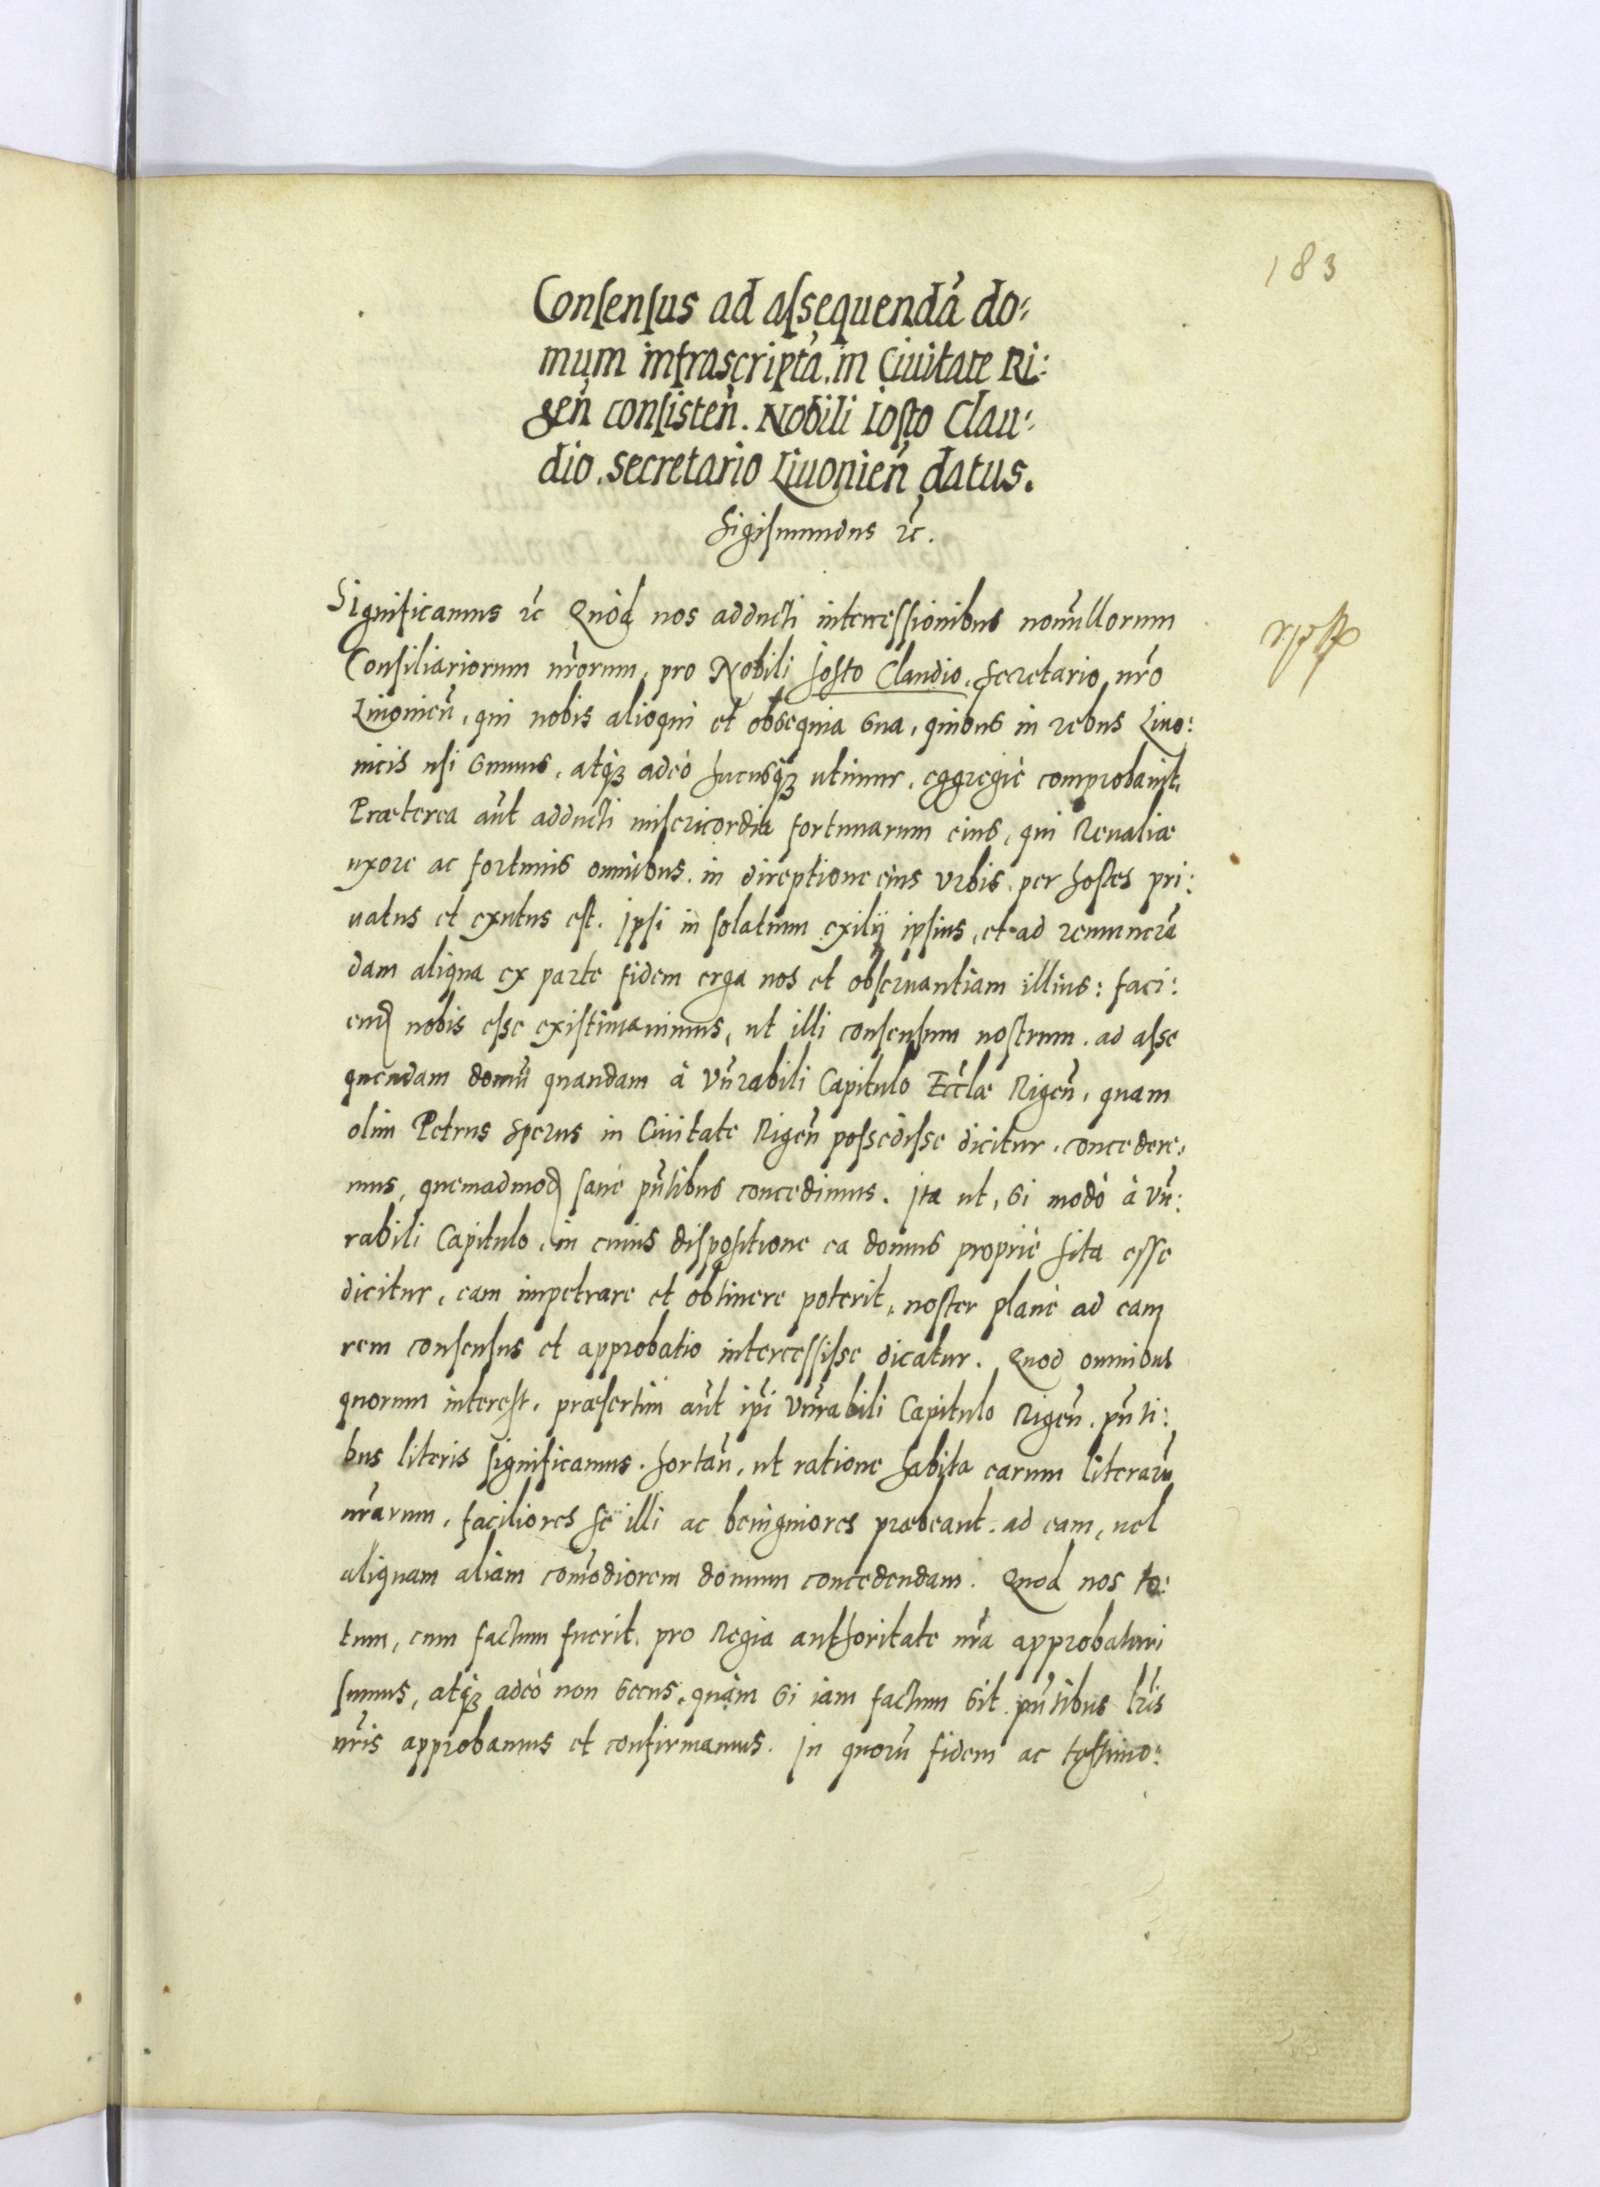 183
Consensus ad assequendā do:
mum infrascriptā in Ciuitate Ri:
geñ consisteñ. Nobili Iosto Clau:
dio, secretario Liuonieñ datus.
Sigismundus ẽc.
Significamus ẽc Quòd nos adducti intercessionibus nonnullorum
Consiliariorum nr̃orum, pro Nobili Josto Claudio, Secretario nr̃o
Liuonieñ, qui nobis alioqui et obsequia sua, quibus in rebus Liuo:
nicis usi sumus, atq̃ꝫ adeò hucusq̃ꝫ utimur, eggregiè comprobauit,
Præterea aũt adducti misericordia fortunarum eius, qui Reualiæ
uxore ac fortunis omnibus in direptione eius Vrbis per hostes pri:
uatus et exutus est. Ipsi in solatium exilij ipsius, et ad remunerā
dam aliqua ex parte fidem erga nos et obseruantiam illius: faci:
end̨ nobis esse existimauimus, ut illi consensum nostrum ad asse
quendam domū quandam à Vñrabili Capitulo Eccl̃æ Rigeñ, quam
olim Petrus Sperus in Ciuitate Rigeñ possedisse dicitur, concedere:
mus, quemadmod̨ sanè pñtibus concedimus. Ita ut, si modò à Vñ:
rabili Capitulo, in cuius dispositione ea domus propriè sita esse
dicitur, eam impetrare et obtinere poterit, noster planè ad eam
rem consensus et approbatio intercessisse dicatur. Quod omnibus
quorum interest, præsertim aũt ip̃i Vñrabili Capitulo Rigeñ pñti:
bus literis significamus. hortañ, ut ratione habita earum literarũ
nr̃arum, faciliores se illi ac benigniores præbeant ad eam, uel
aliquam aliam com̃odiorem domum concedendam. Quod nos to:
tum, cum factum fuerit, pro Regia authoritate nr̃a approbaturi
sumus, atq̃ꝫ adeò non secus, quàm si iam factum sit pñtibus lr̃is
nr̃is approbamus et confirmamus. In quorũ fidem ac testimo: